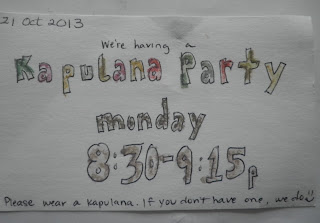 21 Oct 2013
We're having a
Kapulana Party
monday
8:30-9:15p
Please wear a kapulana. If you don't have one, we do